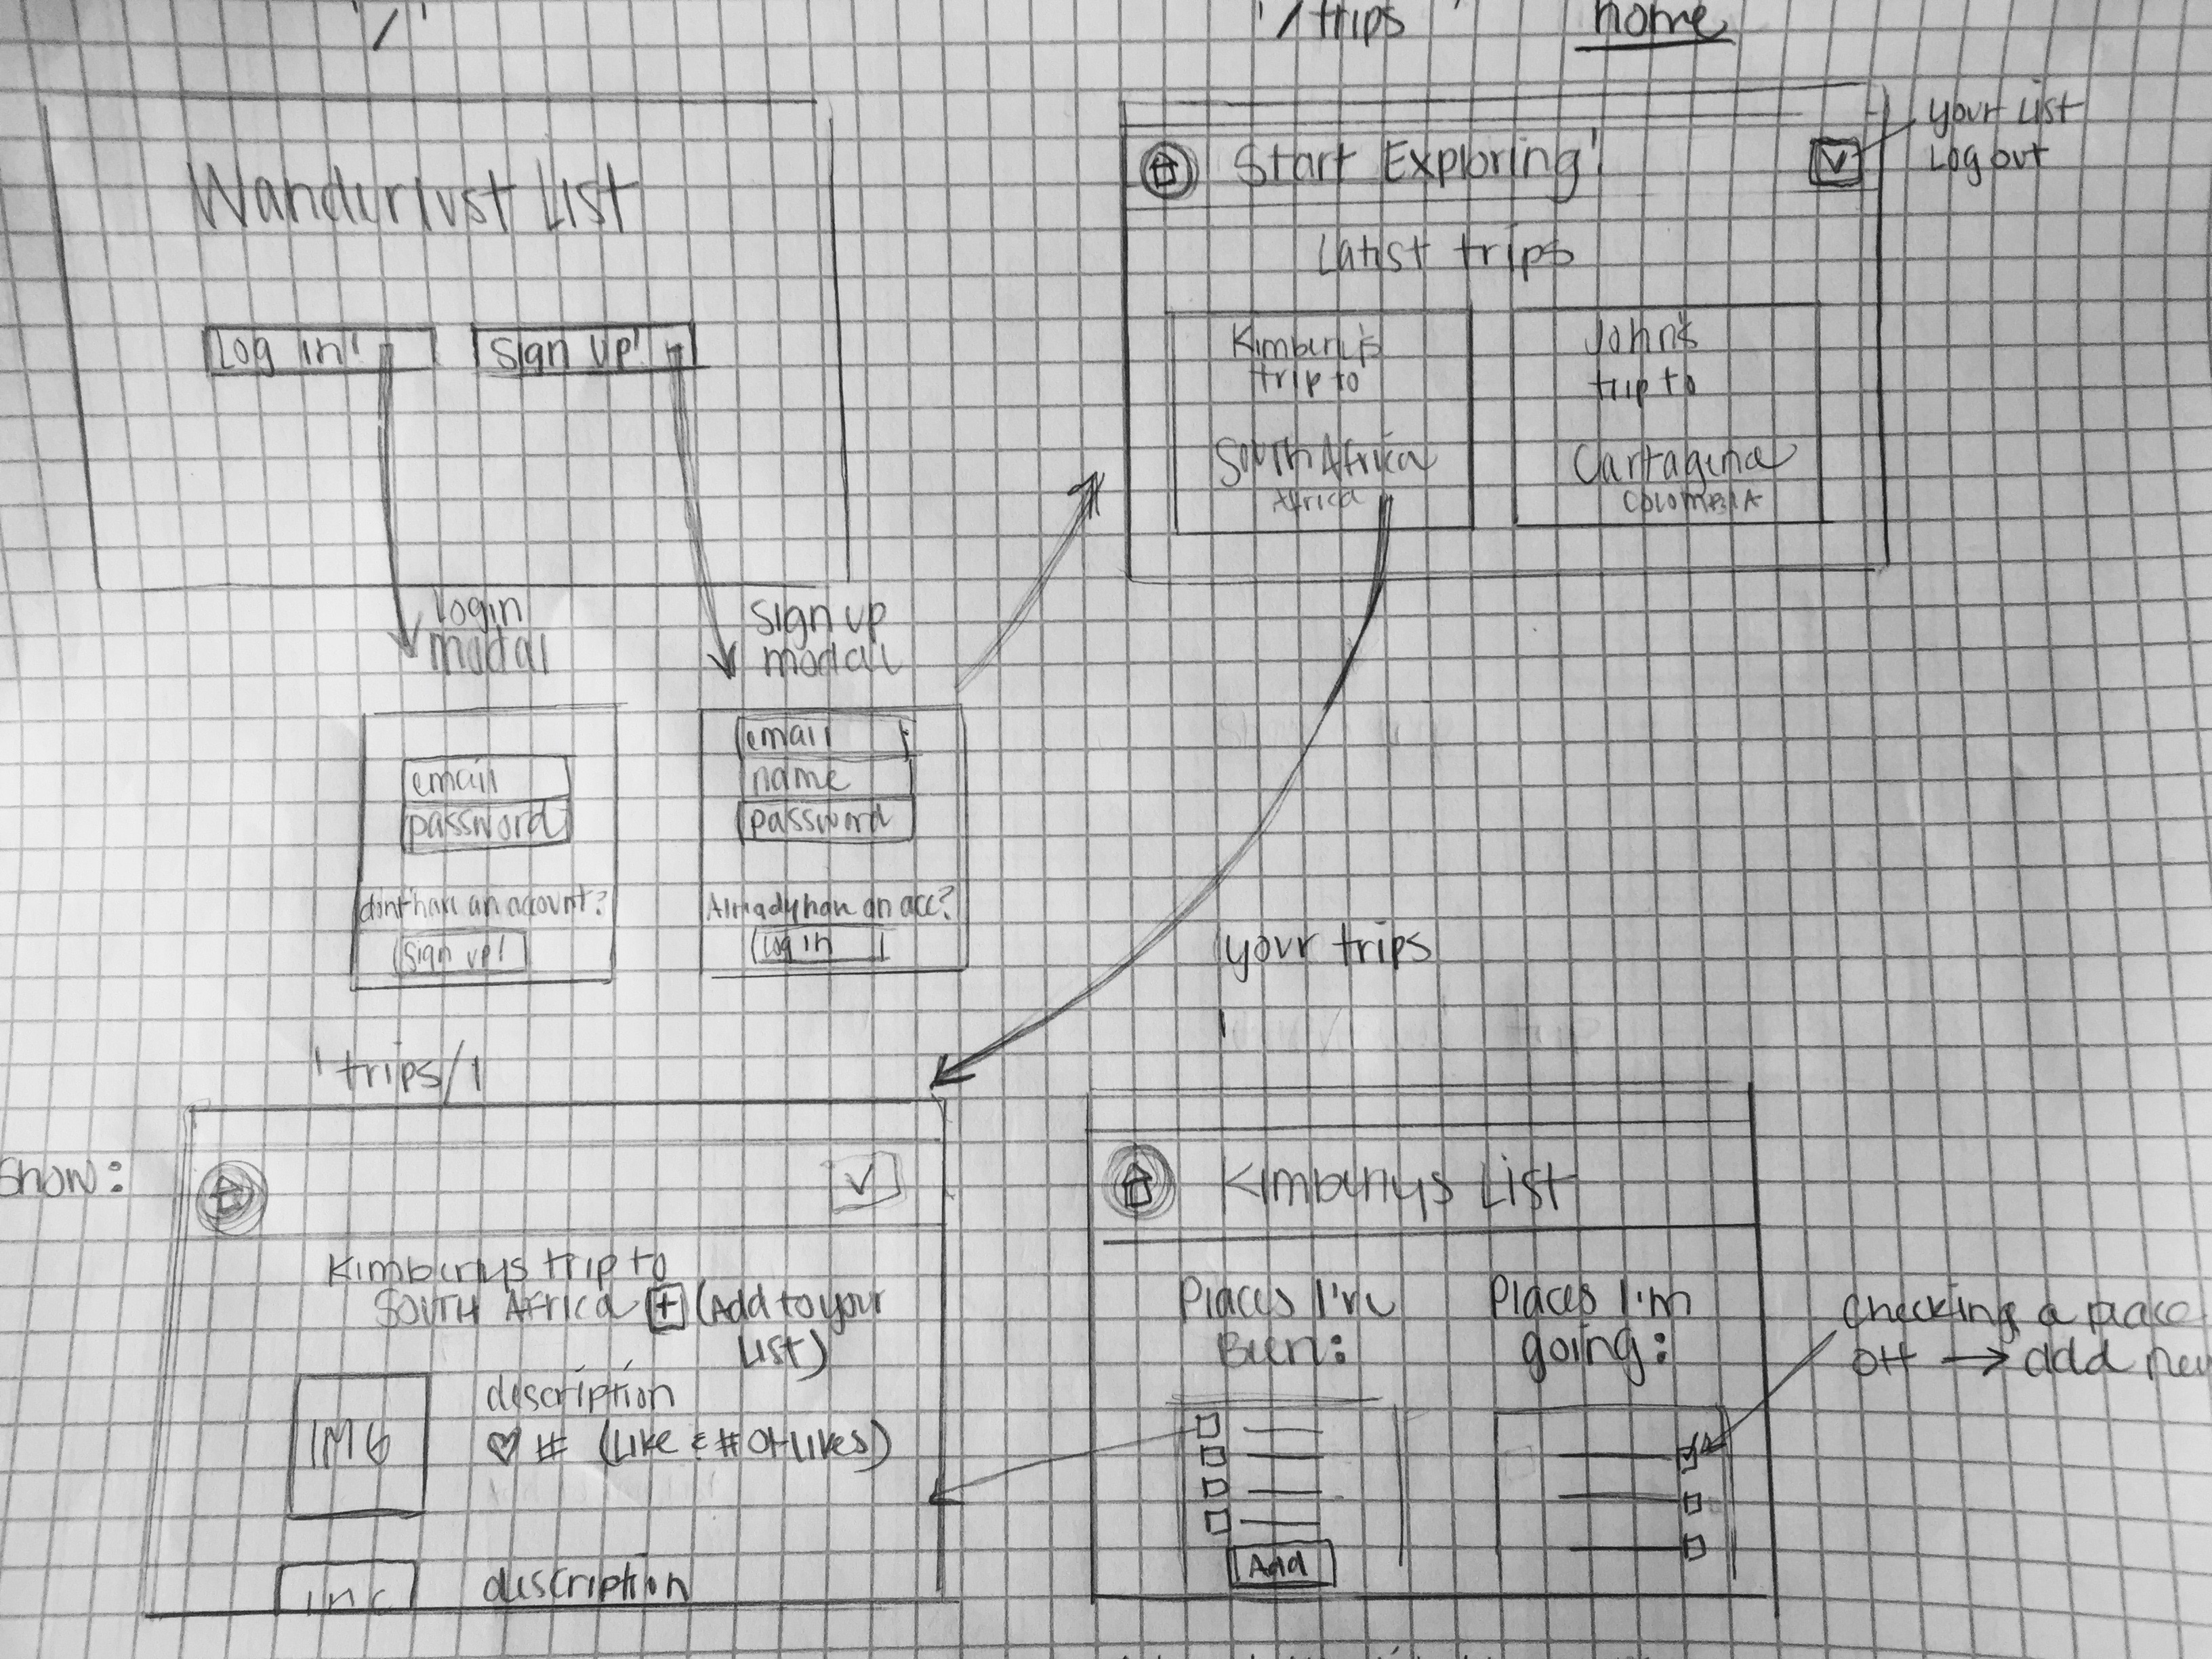 '/'
Wanderlust List
Log in!
Sign up!
login
modal
email
password
dont have an account?
Sign up!
Sign up
modal
email
name
password
Already have an acc?
Log in
'/trips ' home
Start Exploring!
Your List
Log out
Latest trips
Kimberly's
trip to
South Africa
Africa
John's
trip to
Cartagena
COLOMBIA
'trips/1
Show:
Kimberlys trip to
SOUTH AFRICA + (Add to your
List)
IMG
description
♡ # (Like & # of likes)
description
your trips
'
Kimberlys List
Places I've
Been:
Add
Places I'm
going:
Checking a place
off → add new